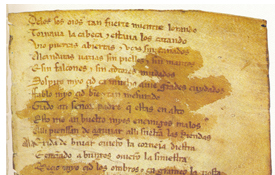 Delos sos oios tan fuerte mientre lorando
Tornaua la cabeça & estaua los catando
Vio puertas abiertas & vços sin cañados
Alcandaras uazias sin pielles & sin mantos
E sin falcones & sin adtores mudados
Sospiro myo çid ca mucho auie grandes cuydados
Fablo myo çid bien & tan mesurado
Grado ati señor padre que estas en alto
Esto me an buelto myos enemigos malos
Alli pienssan de aguiiar alli sueltan las Riendas
Ala exida de biuar ouieron la corneia diestra
E entrando a burgos ouieron la siniestra
Meçio myo çid los ombros & engrameo la tiesta